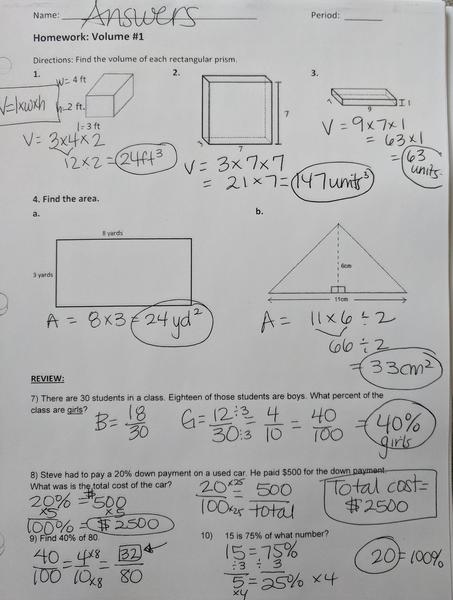 Name: Answers Period:
Homework: Volume #1
Directions: Find the volume of each rectangular prism.
1. 2. 3.
w= 4 ft
V=lxwxh
h=2 ft.
l=3 ft
V= 3x4x2
12x2=24ft³
7
7
V= 3x7x7
= 21x7=147units³
9
1
V= 9x7x1
= 63x1
= 63 units
4. Find the area.
a. b.
8 yards
3 yards
A = 8x3=24yd²
6cm
11cm
A= 11x6÷2
66÷2
=33cm²
REVIEW:
7) There are 30 students in a class. Eighteen of those students are boys. What percent of the
class are girls?
B= 18/30 G=12÷3/30÷3 = 4/10 = 40/100 = 40% girls
8) Steve had to pay a 20% down payment on a used car. He paid $500 for the down payment.
What was the total cost of the car?
20% = $500
x5 x5
100% = $2500
20 x25/100 x25 = 500/total
Total cost=
$2500
9) Find 40% of 80.
40/100 = 4 x8/10 x8 = 32/80
10) 15 is 75% of what number?
15=75%
÷3 ÷3
5=25% x4
x4
20=100%